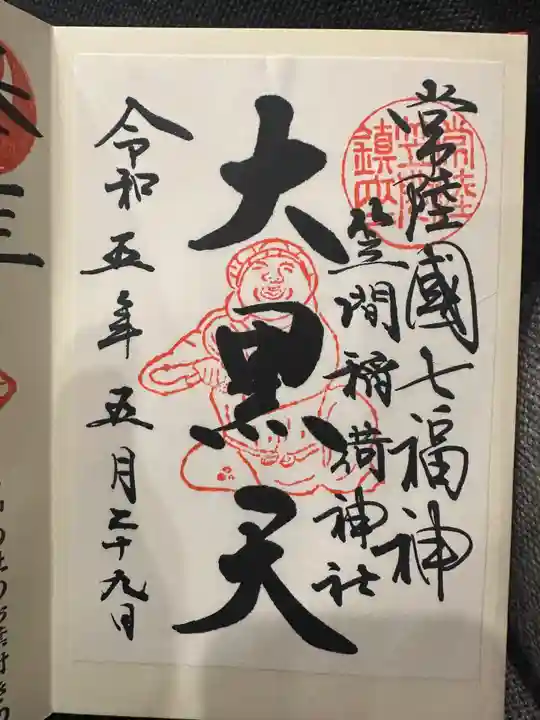 常陸國七福神
笠間稲荷神社
大黒天
令和五年五月二十九日